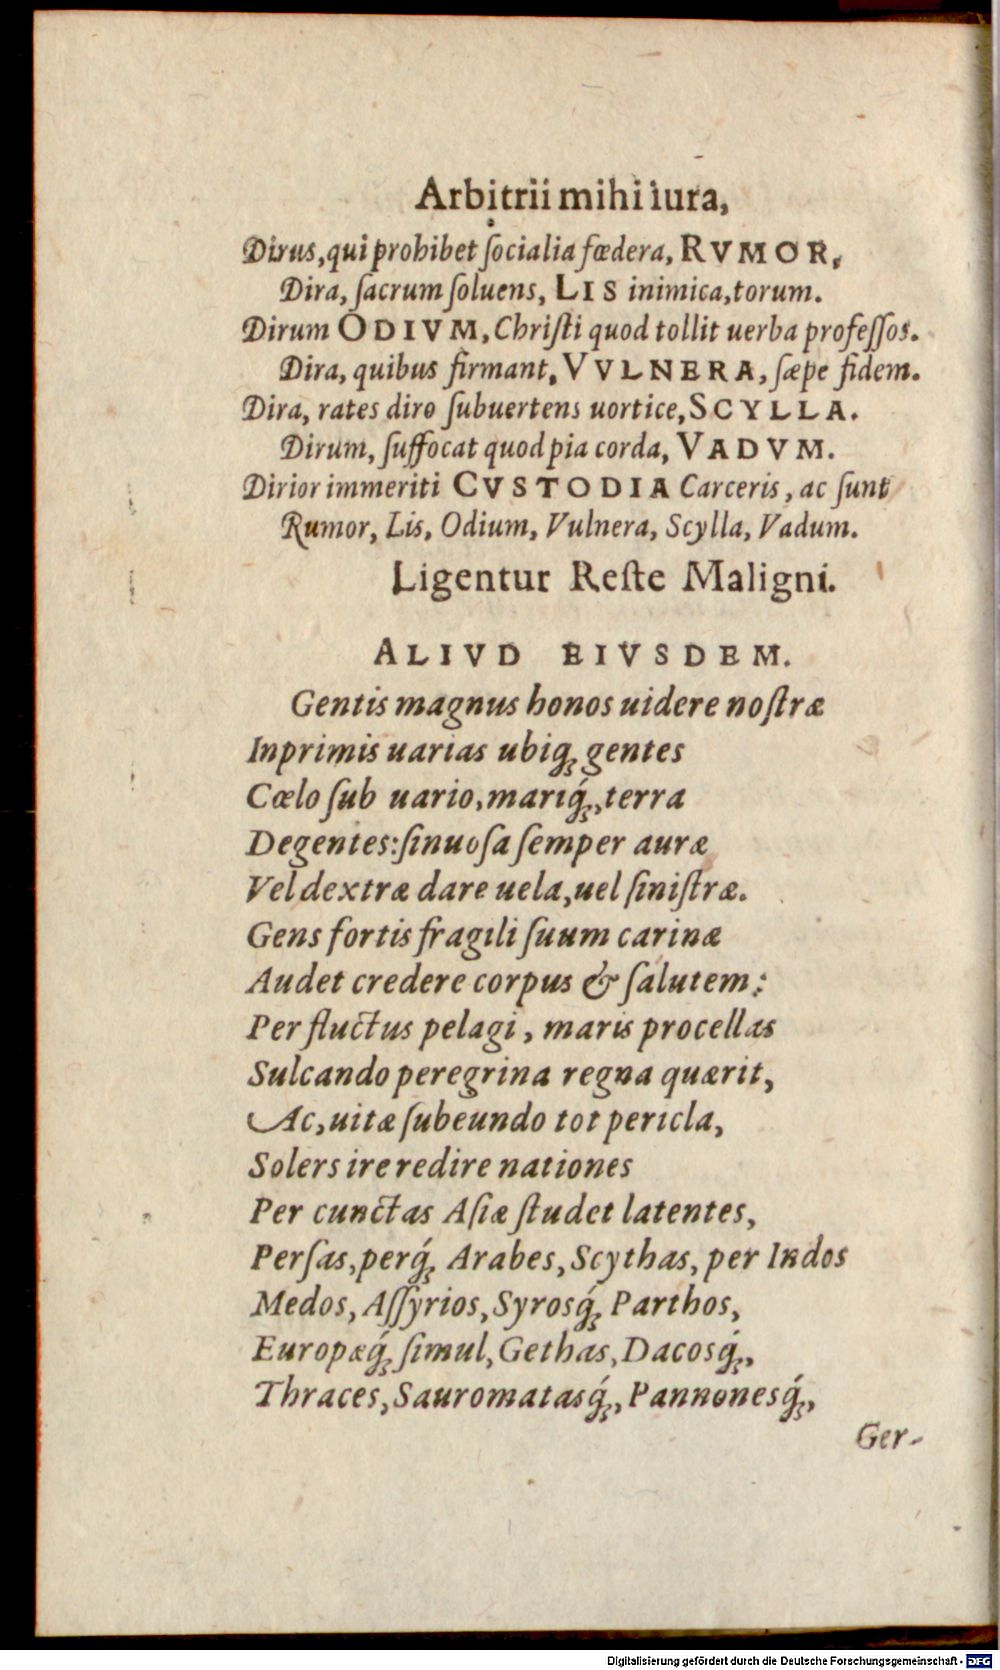 Arbitrii mihi iura,
Dirus, qui prohibet ſocialia fœdera, RVMOR,
Dira, ſacrum ſoluens, LIS inimica, torum.
Dirum ODIVM, Chriſti quod tollit uerba profeſſos.
Dira, quibus firmant, VVLNERA, ſæpe fidem.
Dira, rates diro ſubuertens uortice, SCYLLA.
Dirum, ſuffocat quod pia corda, VADVM.
Dirior immeriti CVSTODIA Carceris, ac ſunt
Rumor, Lis, Odium, Vulnera, Scylla, Vadum.
Ligentur Reſte Maligni.
ALIVD EIVSDEM.
Gentis magnus honos uidere noſtræ
Inprimis uarias ubiq́; gentes
Cœlo ſub uario, mariq́;, terra
Degentes: ſinuoſa ſemper auræ
Vel dextræ dare uela, uel ſiniſtræ.
Gens fortis fragili ſuum carinæ
Audet credere corpus & ſalutem:
Per fluctus pelagi, maris procellas
Sulcando peregrina regna quærit,
Ac, uitæ ſubeundo tot pericla,
Solers ire redire nationes
Per cunctas Aſiæ ſtudet latentes,
Perſas, perq́; Arabes, Scythas, per Indos
Medos, Aſſyrios, Syrosq́; Parthos,
Europæq́; ſimul, Gethas, Dacosq́;,
Thraces, Sauromatasq́;, Pannonesq́;,
Ger-
Digitalisierung gefördert durch die Deutsche Forschungsgemeinschaft - DFG